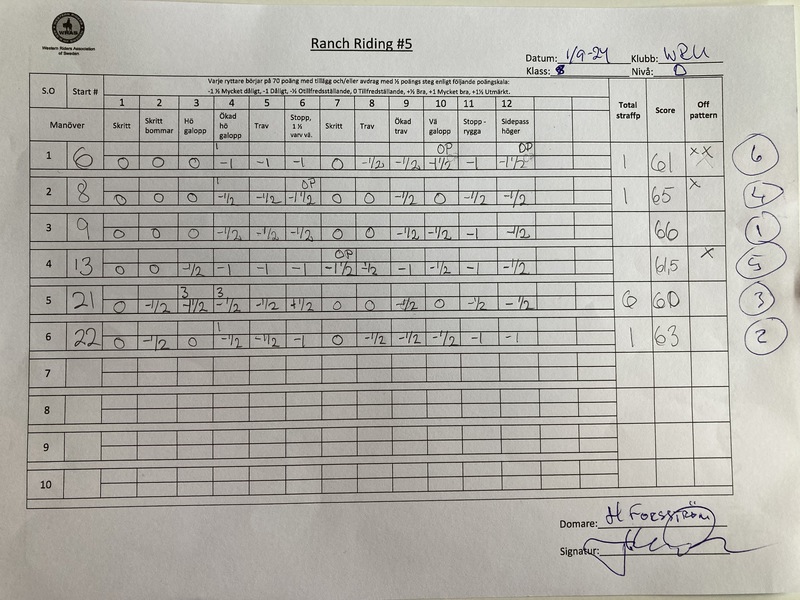 WRAS
Western Riders Association
of Sweden
Ranch Riding #5
Datum: 1/9-24 Klubb: WRU
Klass: 8 Nivå: D
Varje ryttare börjar på 70 poäng med tillägg och/eller avdrag med ½ poängs steg enligt följande poängskala:
-1 ½ Mycket dåligt, -1 Dåligt, -½ Otillfredsställande, 0 Tillfredsställande, +½ Bra, +1 Mycket bra, +1½ Utmärkt.
S.O Start # 1 2 3 4 5 6 7 8 9 10 11 12 Total straffp Score Off pattern
Manöver Skritt Skritt bommar Hö galopp Ökad hö galopp Trav Stopp, 1 ½ varv vä. Skritt Trav Ökad trav Vä galopp Stopp - rygga Sidepass höger
1 OP OP
1 6 0 0 0 -1 -1 -1 0 -1/2 -1/2 -1 1/2 -1 -1 1/2 1 61 x x 6
1 OP
2 8 0 0 0 -1/2 -1/2 -1 1/2 0 0 -1/2 0 -1/2 -1/2 1 65 x 4
3 9 0 0 0 -1/2 -1/2 -1/2 0 0 -1/2 -1/2 -1 -1/2 66 1
OP
4 13 0 0 -1/2 -1 -1 -1 -1 1/2 -1/2 -1 -1/2 -1 -1/2 61,5 x 5
3 3
5 21 0 -1/2 -1/2 -1/2 -1/2 +1/2 0 0 -1/2 0 -1/2 -1/2 6 60 3
1
6 22 0 -1/2 0 -1/2 -1/2 -1 0 -1/2 -1/2 -1/2 -1 -1 1 63 2
7
8
9
10
Domare: H FORSSTRÖM
Signatur: